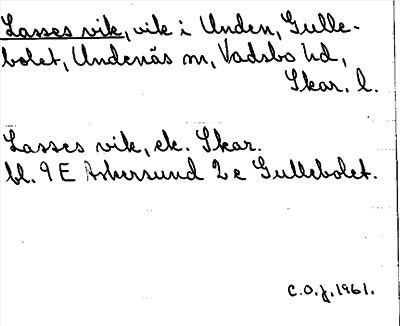 Lasses vik, vik i Unden, Gulle-
bolet, Undenäs sn, Vadsbo hd,
Skar. l.
Lasses vik, ek. Skar.
bl. 9 E Askersund 2 e Gullebolet.
C.O.J. 1961.